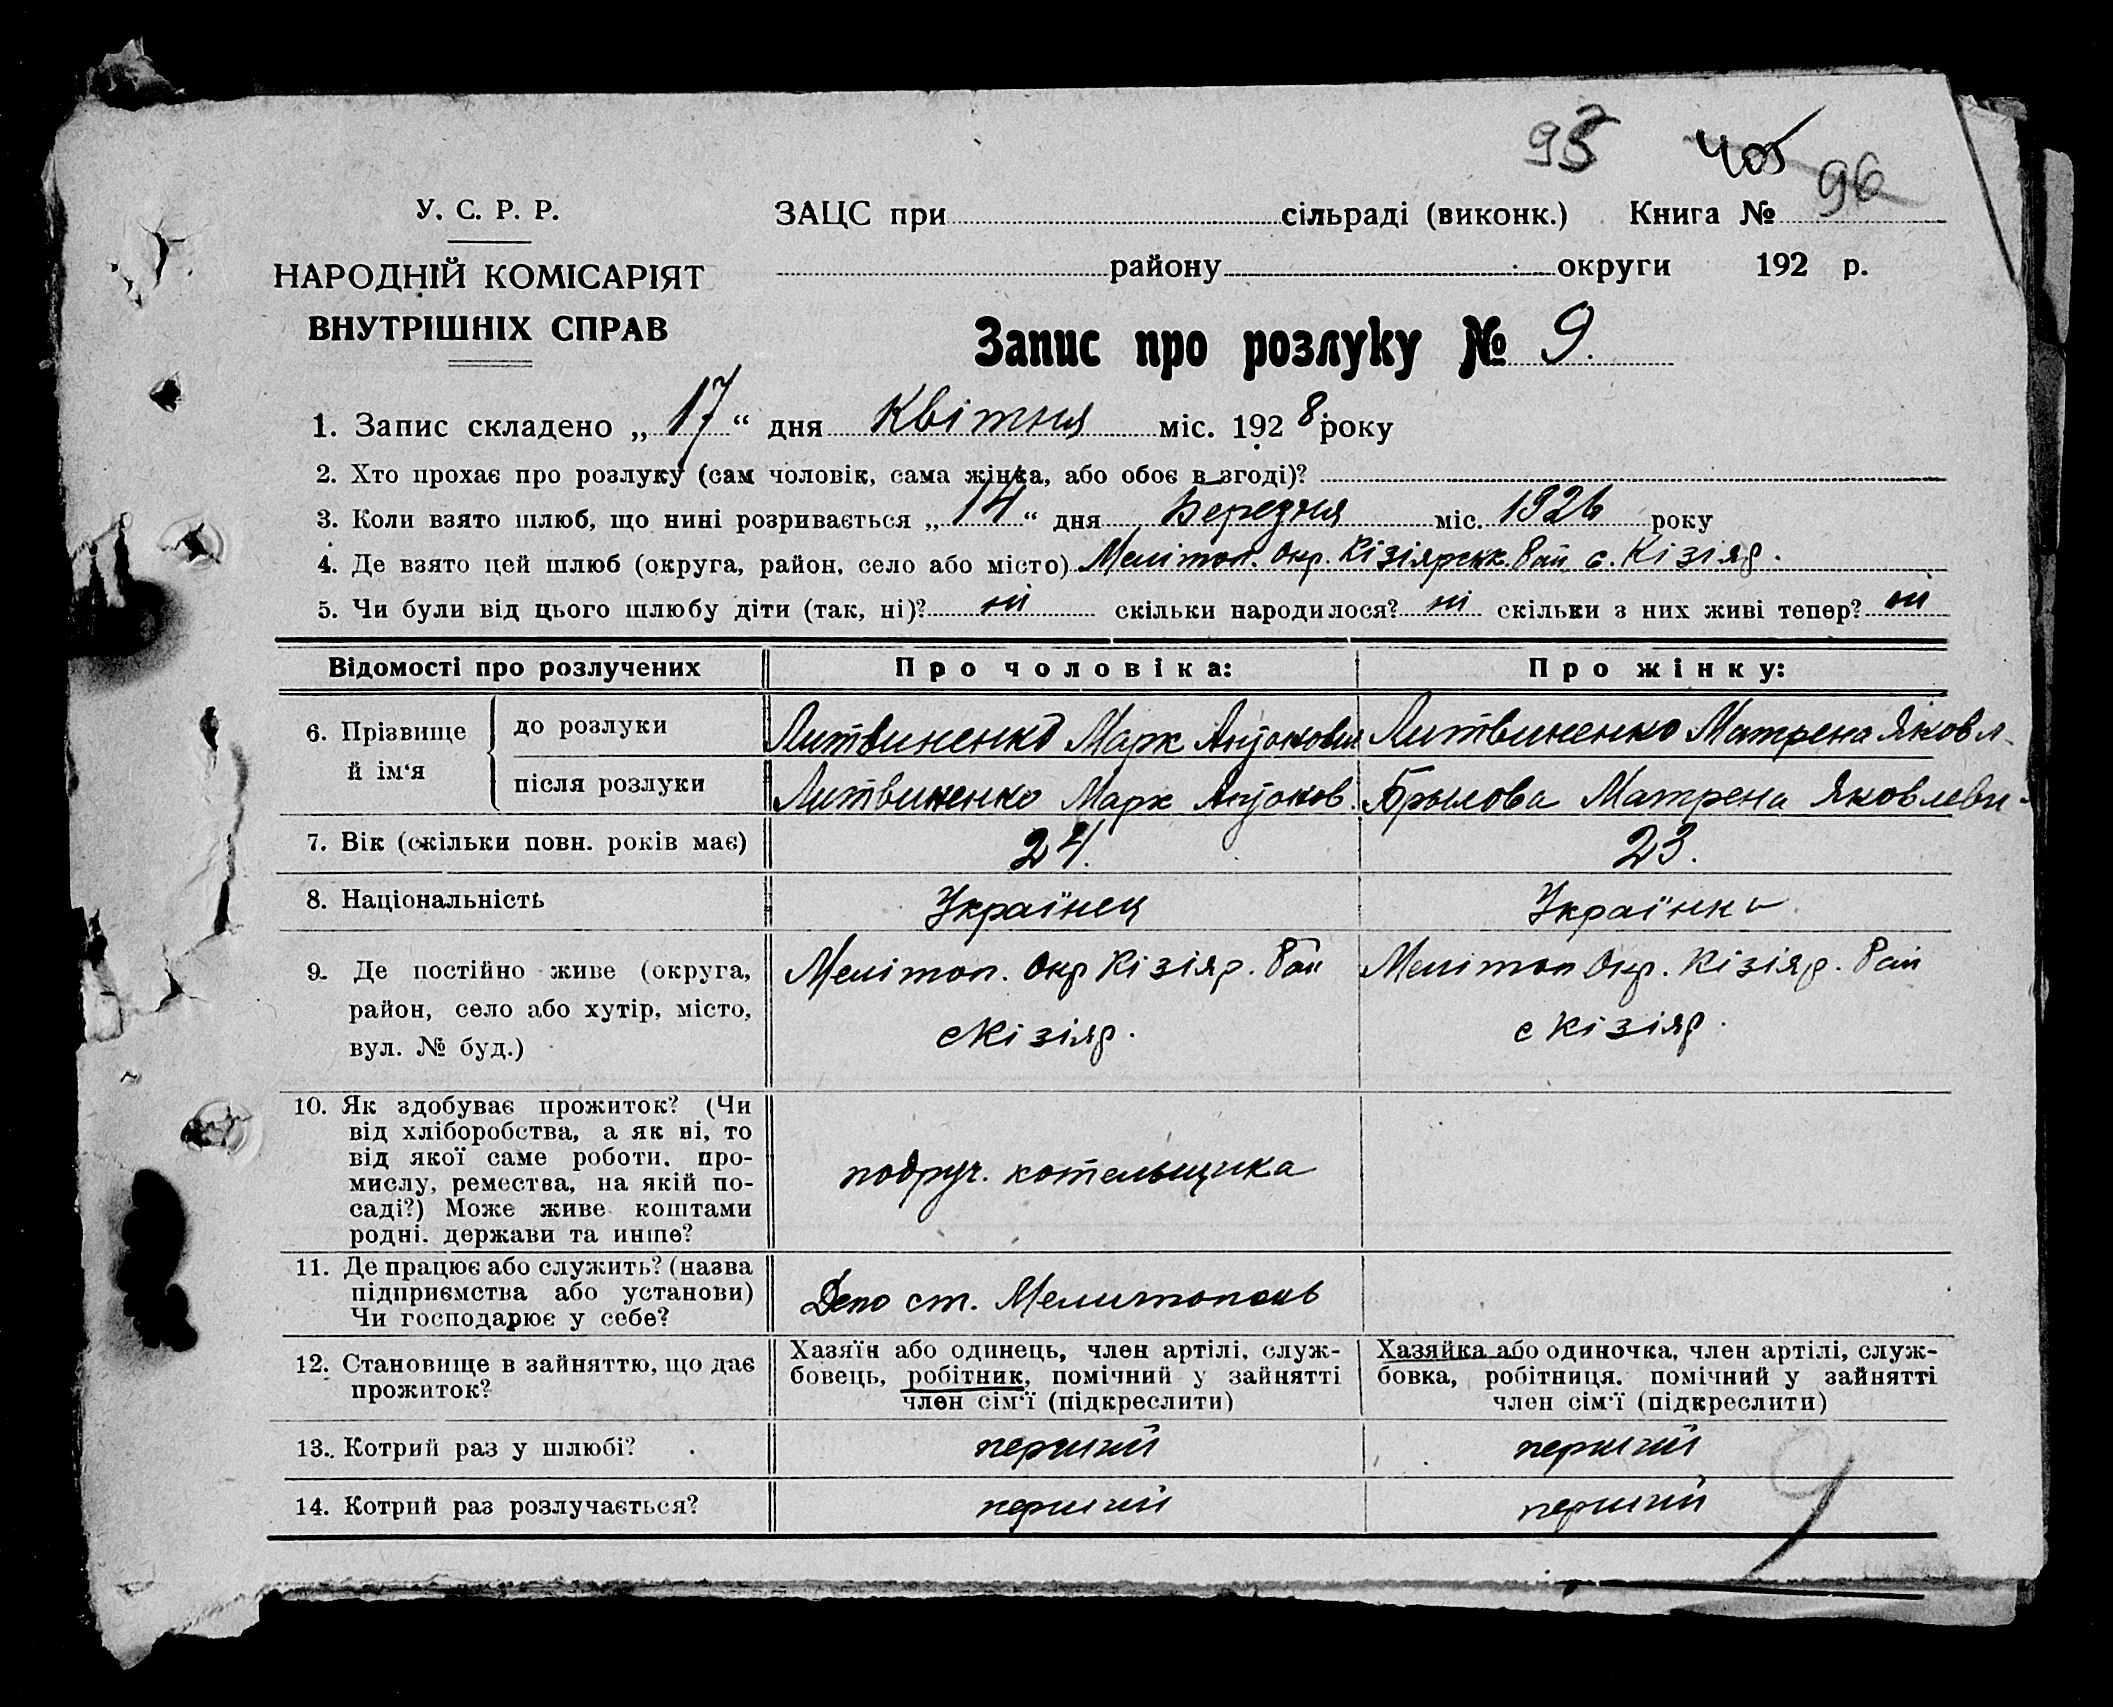 93 405 96
У. С. Р. Р.
НАРОДНІЙ КОМІСАРІЯТ
ВНУТРІШНІХ СПРАВ
ЗАЦС при сільраді (виконк.) Книга №
району округи 192 р.
Запис про розлуку № 9.
1. Запис складено „ 17 “ дня Квітня міс. 1928 року
2. Хто прохає про розлуку (сам чоловік, сама жінка, або обоє в згоді)?
3. Коли взято шлюб, що нині розривається „ 14 “ дня Березня міс. 1926 року
4. Де взято цей шлюб (округа, район, село або місто) Мелітоп. Окр. Кізіярськ. Рай. с. Кізіяр.
5. Чи були від цього шлюбу діти (так, ні)? ні скільки народилося? ні скільки з них живі тепер? ні
Відомості про розлучених Про чоловіка: Про жінку:
6. Прізвище й ім‘я
до розлуки Литвиненко Марк Литвиненко Матрена Яковл.
після розлуки Литвиненко Марк Брылова Матрена Яковлевн.
7. Вік (скільки повн. років має) 24. 23.
8. Національність Українец Українка
9. Де постійно живе (округа,
район, село або хутір, місто,
вул. № буд.)
Мелітоп. Окр Кізіяр. Рай
с Кізіяр.
Мелітоп Окр. Кізіяр. Рай
с Кізіяр.
10. Як здобуває прожиток? (Чи
від хліборобства, а як ні, то
від якої саме роботи, про-
мислу, ремества, на якій по-
саді?) Може живе коштами
родні, держави та инше?
подруч. котельщика
11. Де працює або служить? (назва
підприємства або установи)
Чи господарює у себе?
Депо ст. Мелитополь
12. Становище в зайняттю, що дає
прожиток?
Хазяїн або одинець, член артілі, служ-
бовець, робітник, помічний у зайнятті
член сім‘ї (підкреслити)
Хазяйка або одиночка, член артілі, служ-
бовка, робітниця, помічний у зайнятті
член сім‘ї (підкреслити)
13. Котрий раз у шлюбі? перший перший
14. Котрий раз розлучається? перший перший
9